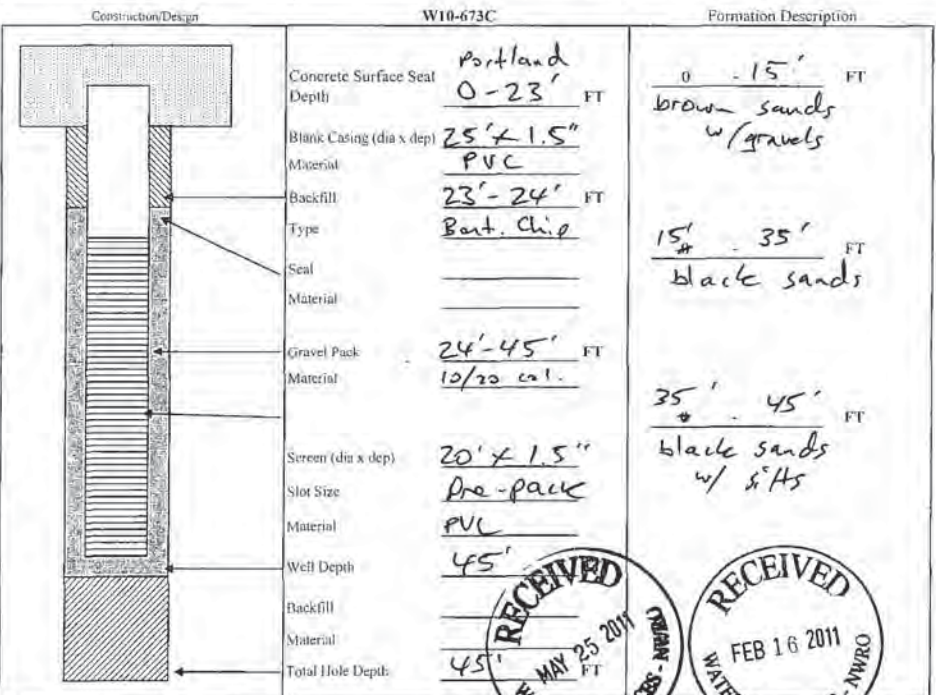 Construction/Design
W10-673C
Formation Description
Concrete Surface Seal
Depth
Portland
0-23' FT
Blank Casing (dia x dep) 25' x 1.5"
Material PVC
Backfill 23'-24' FT
Type Bent. Chip
Seal
Material
Gravel Pack 24'-45' FT
Material 10/20 col.
Screen (dia x dep) 20' x 1.5"
Slot Size Pre-pack
Material PVC
Well Depth 45'
Backfill
Material
Total Hole Depth 45' FT
0 - 15' FT
brown sands
w/gravels
15' - 35' FT
black sands
35' - 45' FT
black sands
w/ silts
RECEIVED
MAY 25 2011
RECEIVED
FEB 16 2011
NWRO